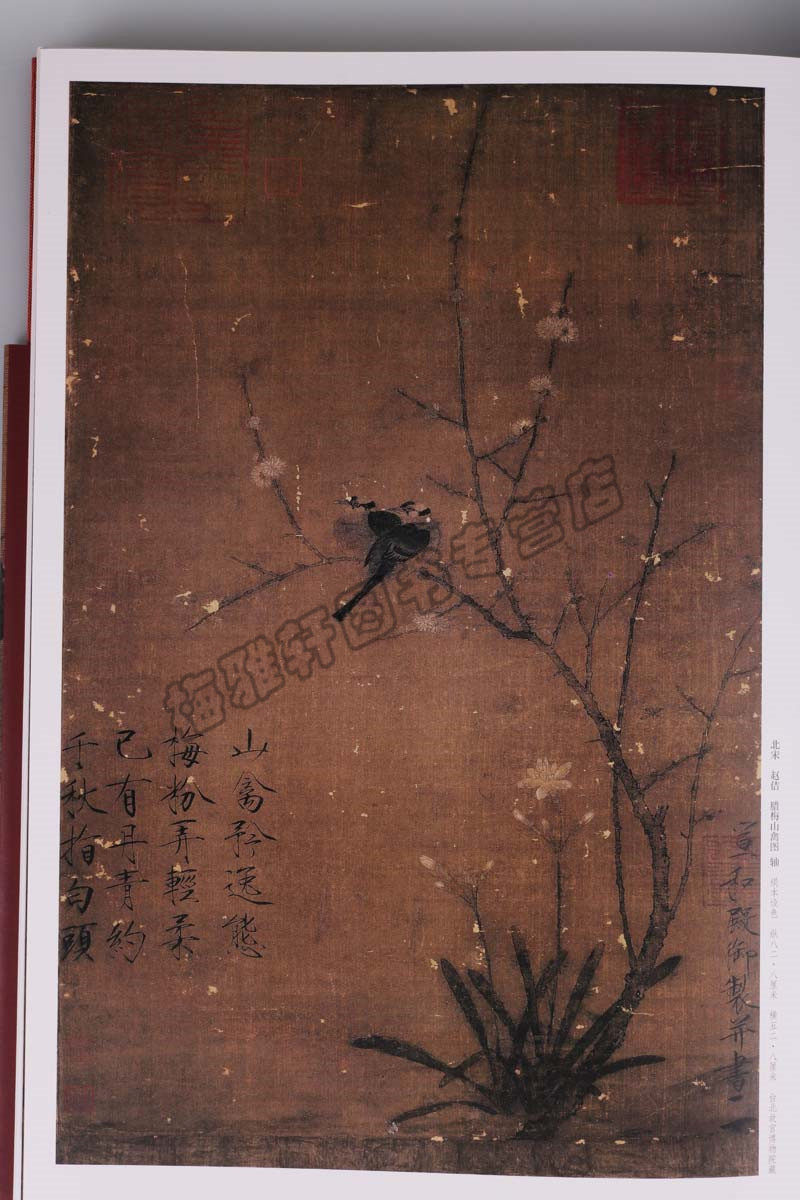 山禽矜逸態
梅粉弄輕柔
已有丹青約
千秋指白頭
宣和殿御製并書
北宋 赵佶 腊梅山禽图 轴 绢本设色 纵八二·八厘米 横五二·八厘米 台北故宫博物院藏
梅雅轩图书专营店